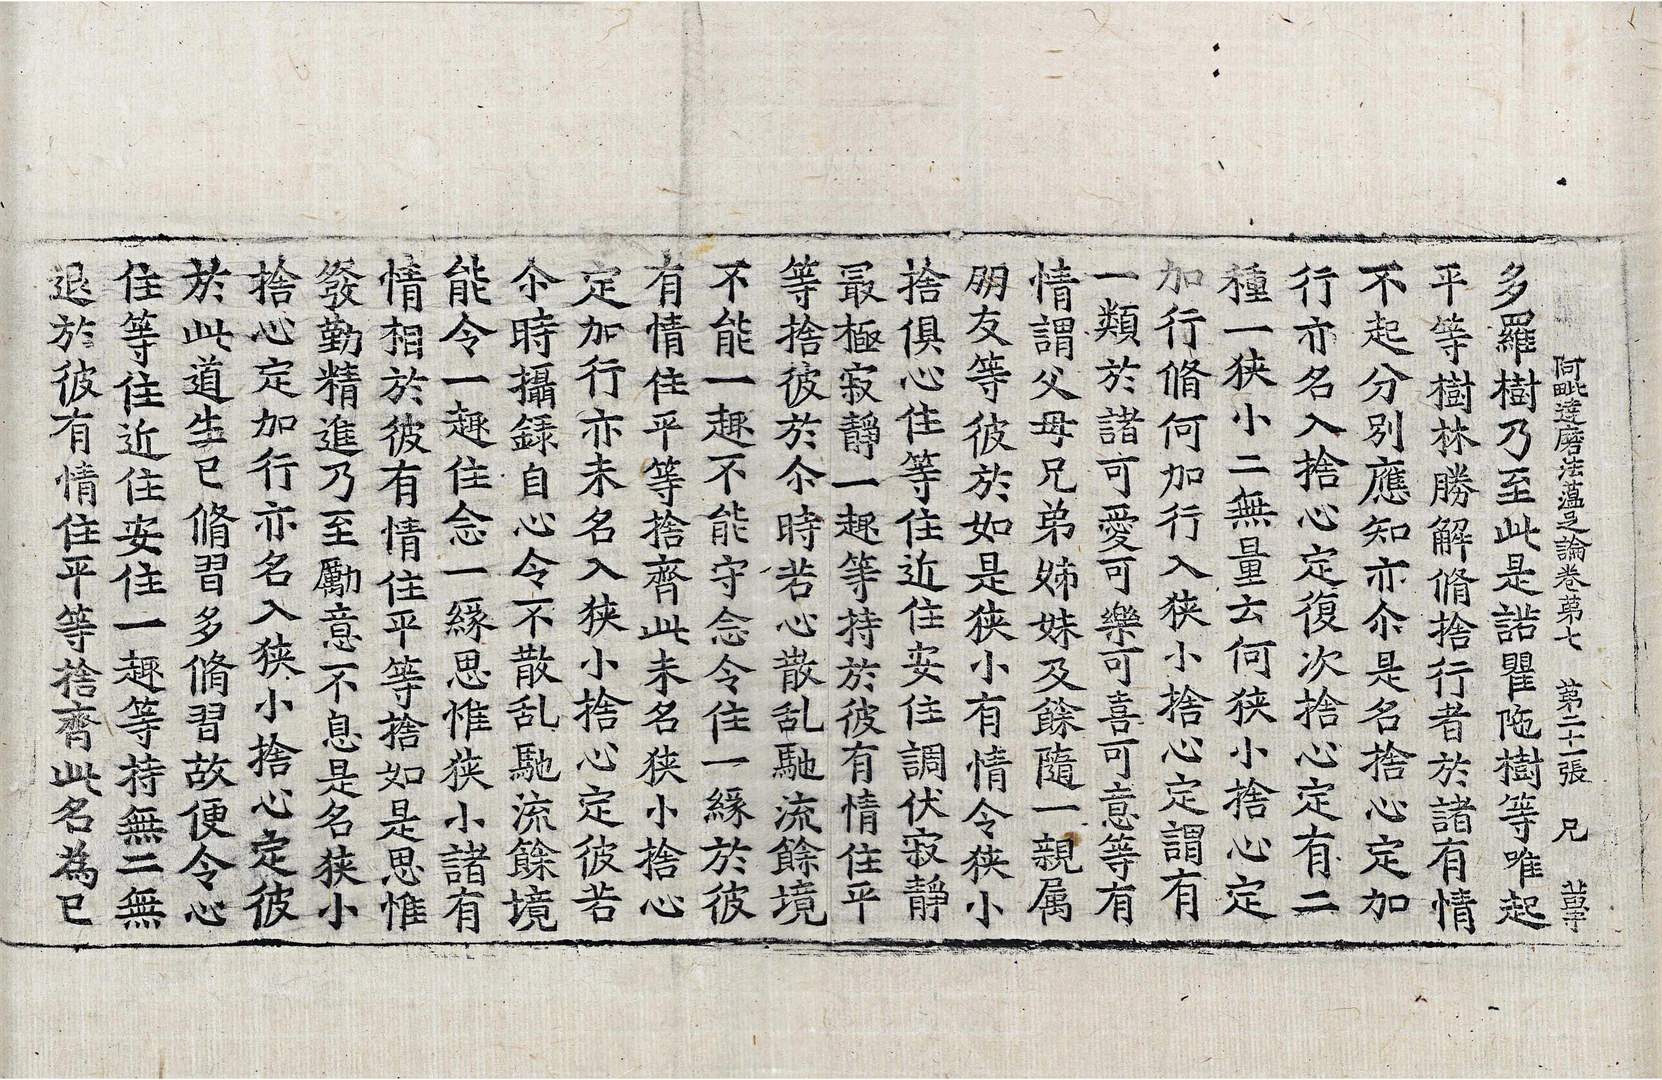 阿毗達磨法蘊足論卷第七　第二十一張　兄
多羅樹乃至此是諾瞿陁樹等唯起
平等樹林勝解脩捨行者於諸有情
不起分別應知亦尒是名捨心定加
行亦名入捨心定復次捨心定有二
種一狹小二無量云何狹小捨心定
加行脩何加行入狹小捨心定謂有
一類於諸可愛可樂可喜可意等有
情謂父母兄弟姊妹及餘隨一親属
朋友等彼於如是狹小有情令狹小
捨俱心住等住近住安住調伏寂靜
最極寂靜一趣等持於彼有情住平
等捨彼於尒時若心散乱馳流餘境
不能一趣不能守念令住一緣於彼
有情住平等捨齊此未名狹小捨心
定加行亦未名入狹小捨心定彼若
尒時攝錄自心令不散乱馳流餘境
能令一趣住念一緣思惟狹小諸有
情相於彼有情住平等捨如是思惟
發勤精進乃至勵意不息是名狹小
捨心定加行亦名入狹小捨心定彼
於此道生已脩習多脩習故便令心
住等住近住安住一趣等持無二無
退於彼有情住平等捨齊此名為已